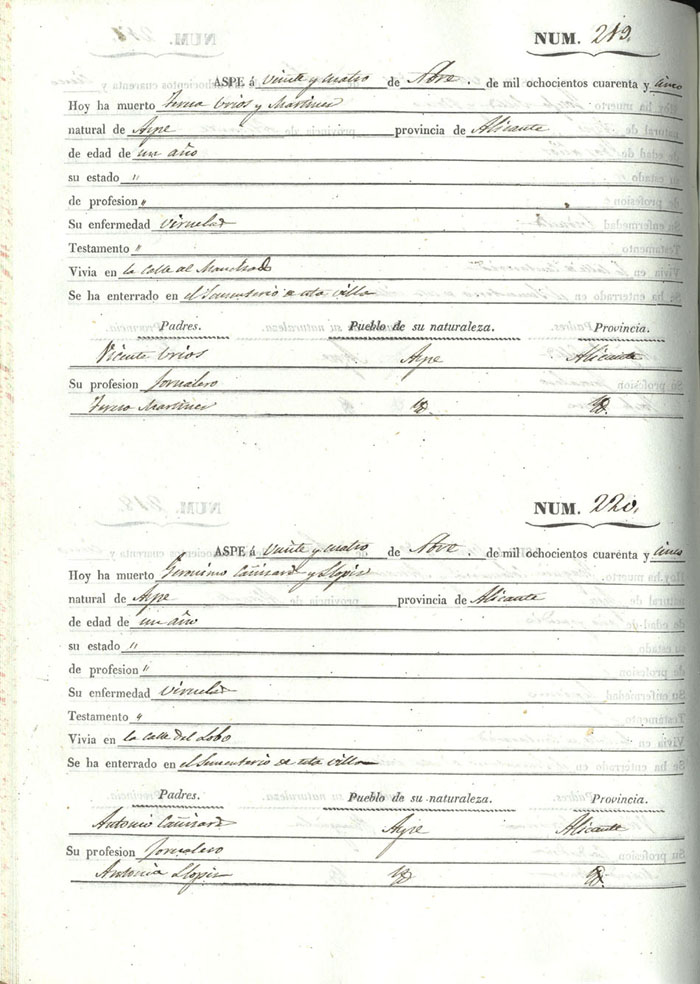 NUM. 219.
ASPE á Veinte y cuatro de Nbre. de mil ochocientos cuarenta y cinco
Hoy ha muerto Teresa Orios y Martinez
natural de Aspe provincia de Alicante
de edad de un año
su estado "
de profesion "
Su enfermedad Viruelas
Testamento "
Vivia en la Calle al
Se ha enterrado en el Sementerio de esta villa
Padres. Pueblo de su naturaleza. Provincia.
Vicente Orios Aspe Alicante
Su profesion Jornalero
Teresa Martinez Yd. Yd.
NUM. 220.
ASPE á Veinte y cuatro de Nbre. de mil ochocientos cuarenta y cinco
Hoy ha muerto Geronimo Cañizares y Llopis
natural de Aspe provincia de Alicante
de edad de un año
su estado "
de profesion "
Su enfermedad Viruelas
Testamento "
Vivia en la Calle del Lobo
Se ha enterrado en el Sementerio de esta villa
Padres. Pueblo de su naturaleza. Provincia.
Antonio Cañizares Aspe Alicante
Su profesion Jornalero
Antonia Llopis Yd. Yd.